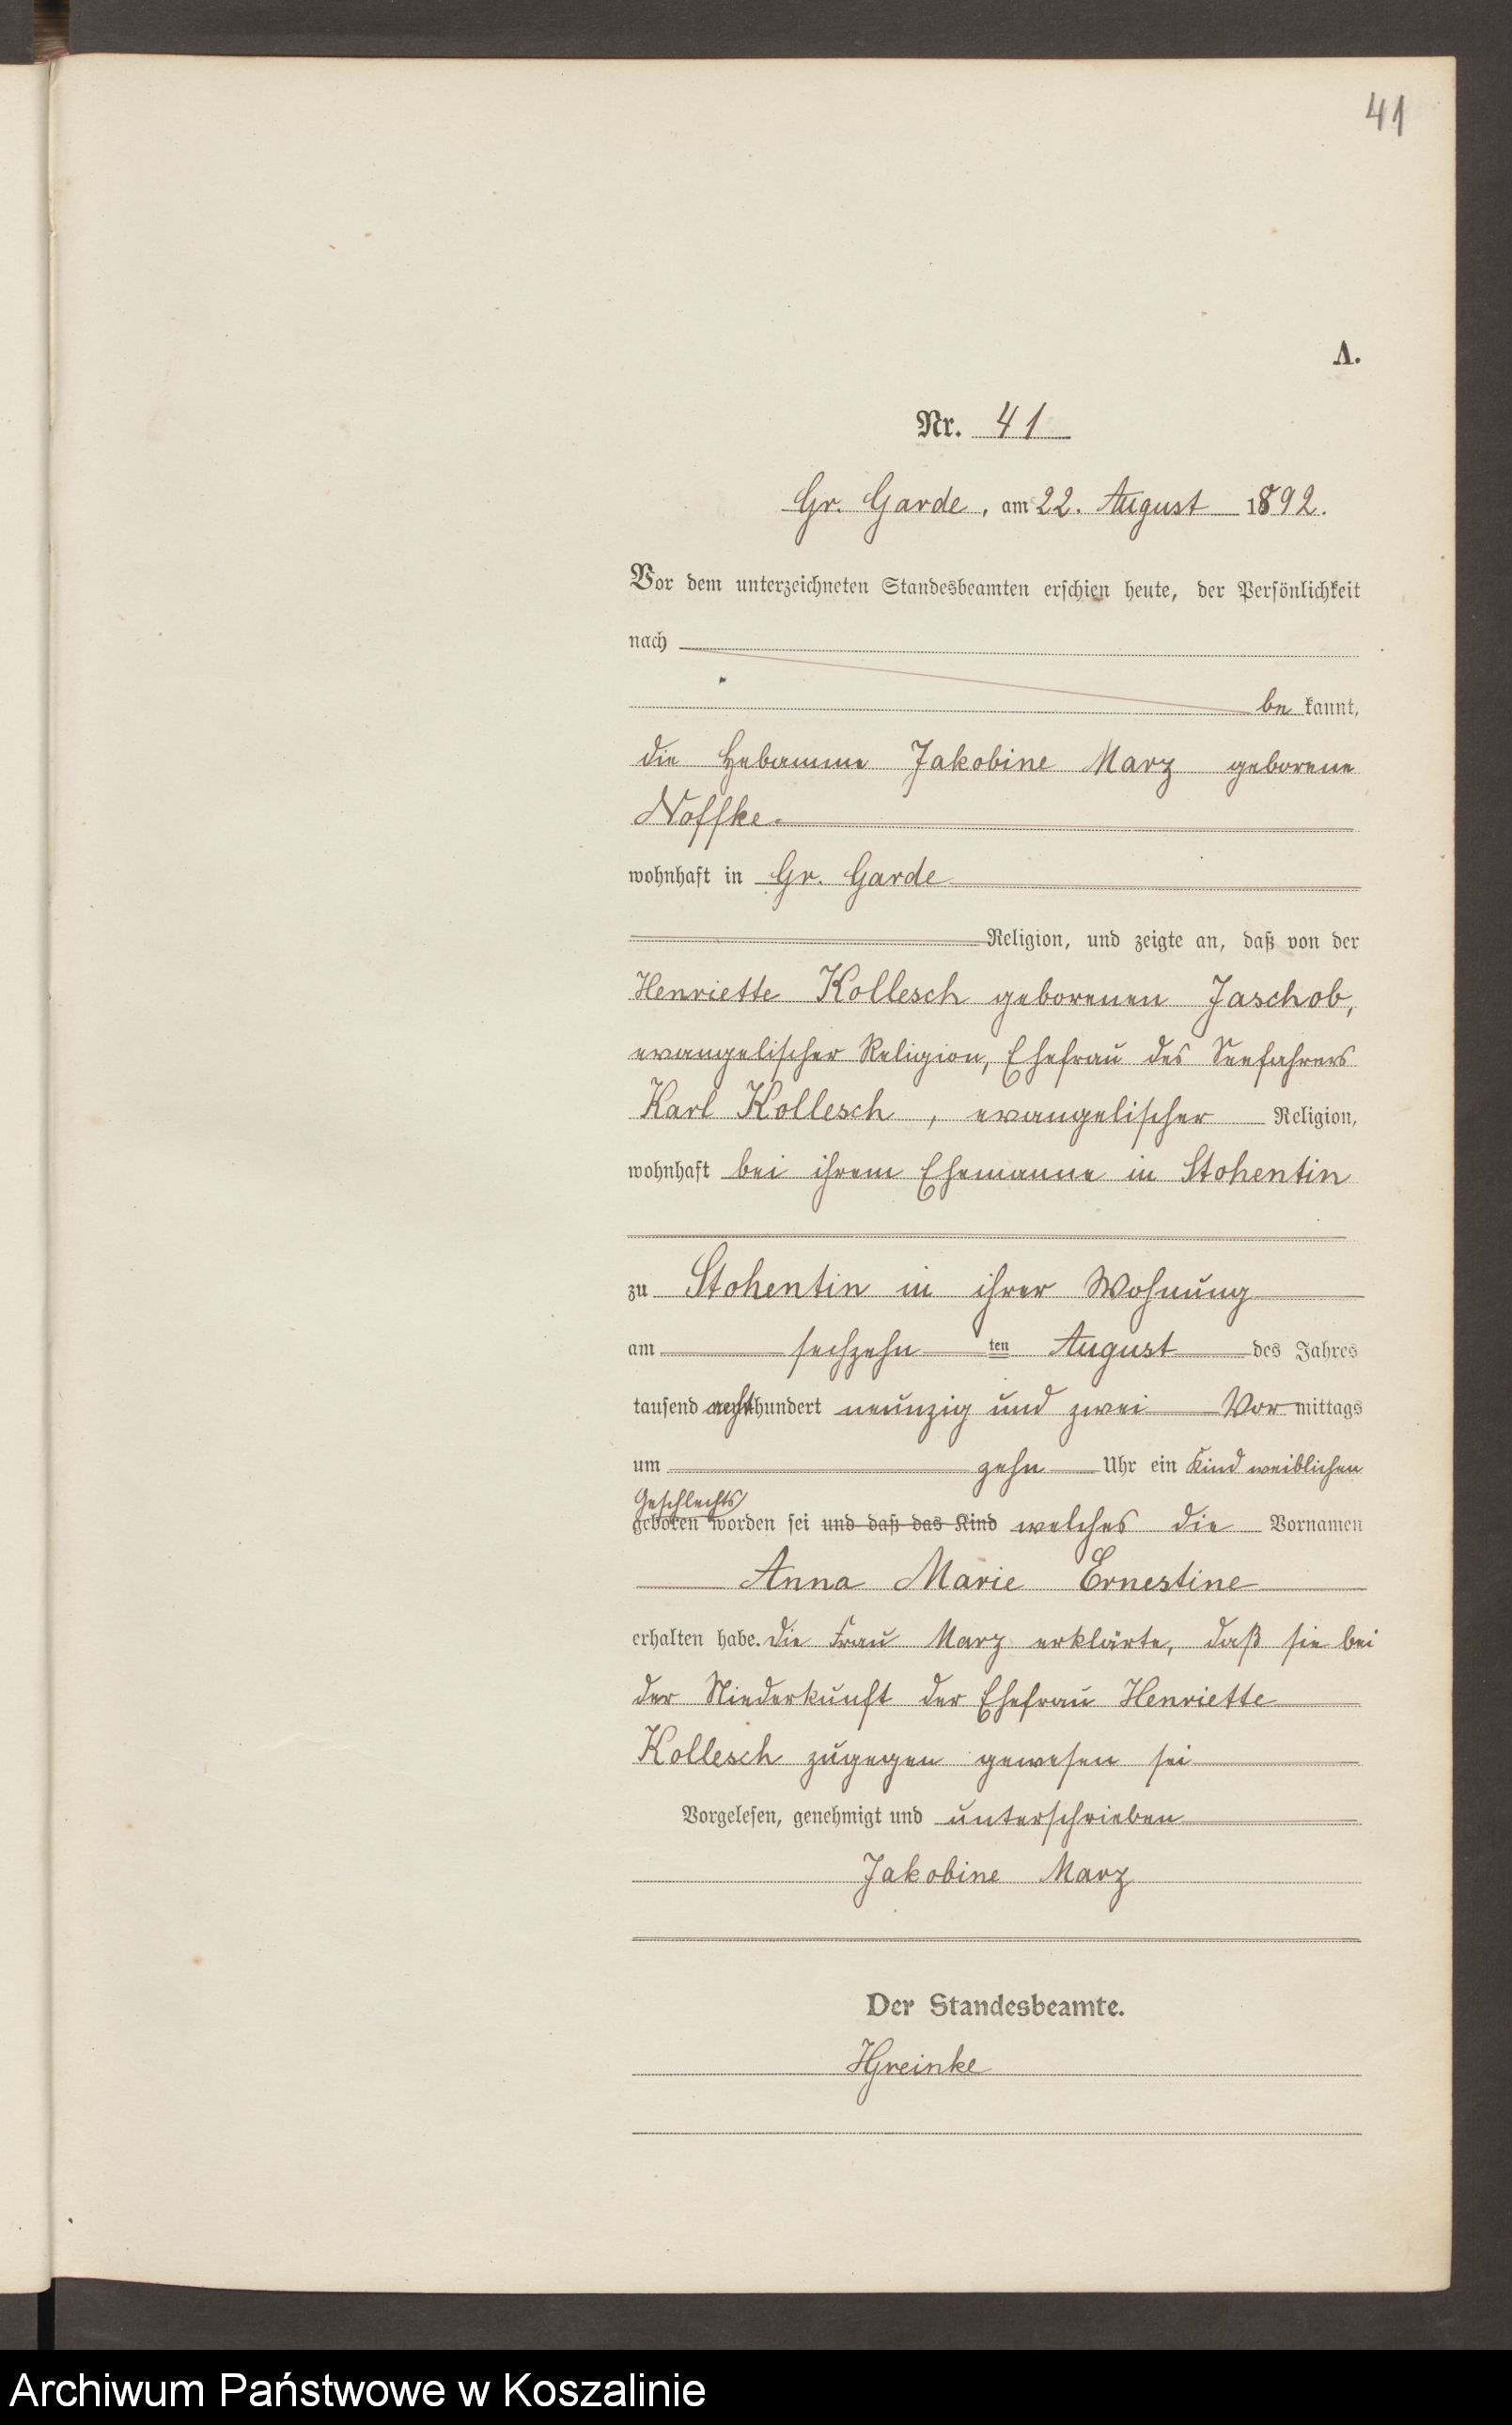 41
A.
Nr. 41
Gr. Garde, am 22. August 1892.
Vor dem unterzeichneten Standesbeamten erschien heute, der Persönlichkeit
nach
be kannt,
die Hebamme Jakobine Marz geborene
Noffke.
wohnhaft in Gr. Garde
Religion, und zeigte an, daß von der
Henriette Kollesch geborenen Jaschob,
evangelischer Religion, Ehefrau des Seefahrers
Karl Kollesch, evangelischer Religion,
wohnhaft bei ihrem Ehemanne in Stohentin
zu Stohentin in ihrer Wohnung
am sechzehn ten August des Jahres
tausend acht hundert neunzig und zwei Vor mittags
um zehn Uhr ein Kind weiblichen
Geschlechts
geboren worden sei und daß das Kind welches die Vornamen
Anna Marie Ernestine
erhalten habe. Die Frau Marz erklärte, daß sie bei
der Niederkunft der Ehefrau Henriette
Kollesch zugegen gewesen sei
Vorgelesen, genehmigt und unterschrieben
Jakobine Marz
Der Standesbeamte.
HGreinke
Archiwum Państwowe w Koszalinie